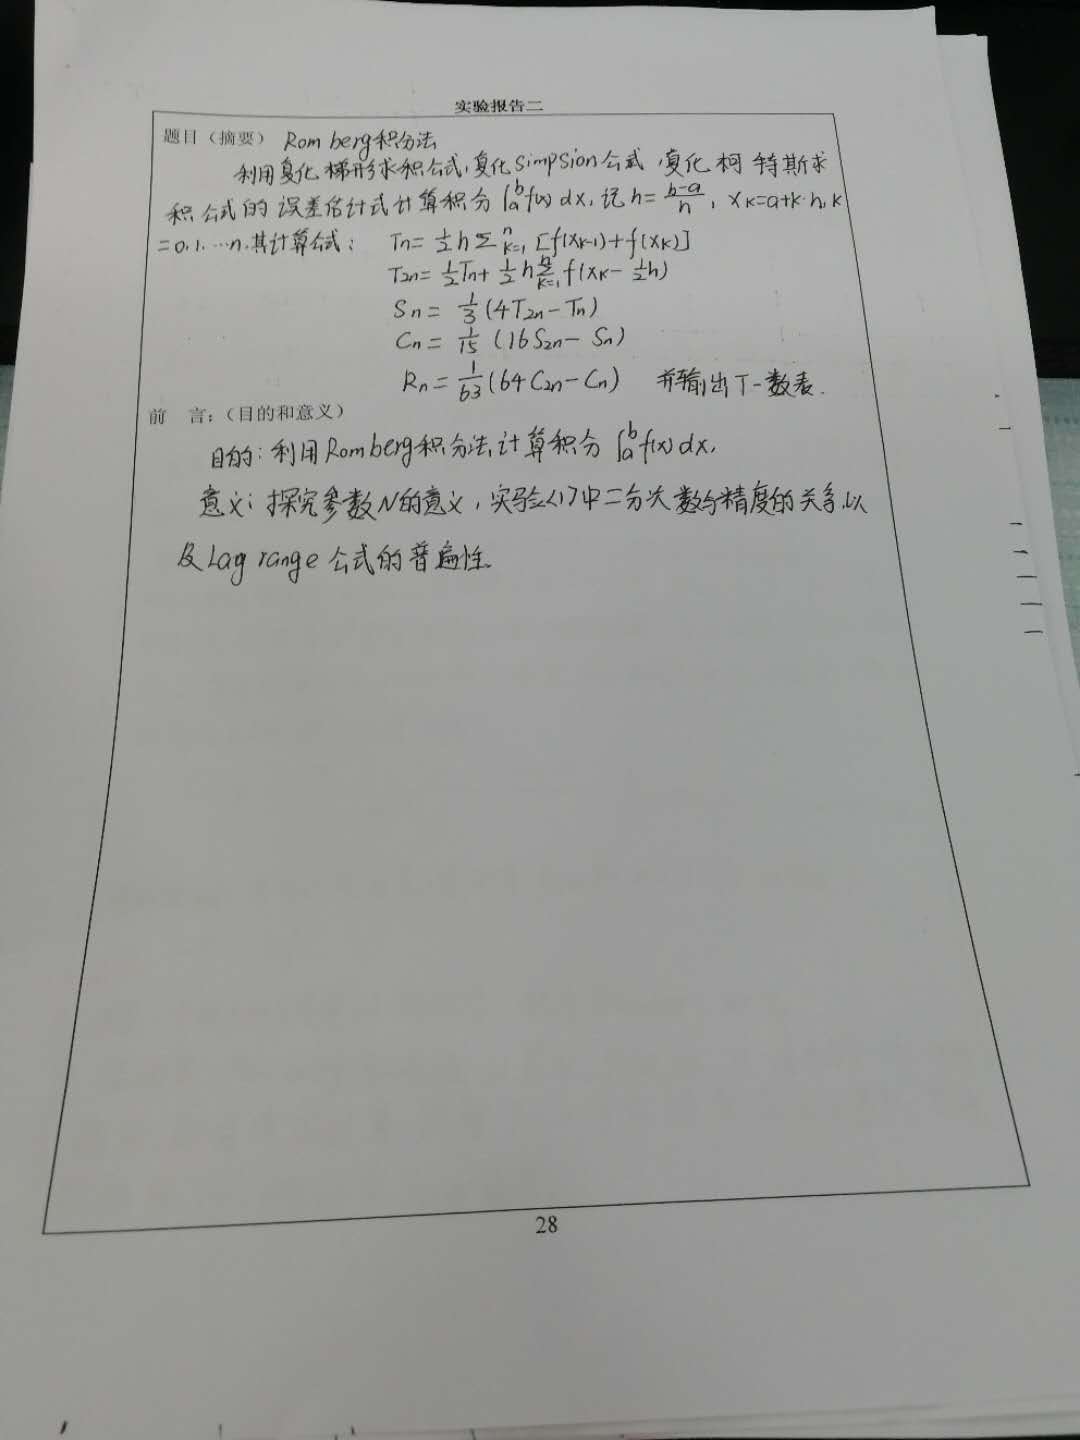 实验报告二
题目（摘要） Romberg积分法
利用复化梯形求积公式,复化simpsion公式,复化柯特斯求
积公式的误差估计式计算积分∫ₐᵇf(x)dx,记h=(b-a)/n, xₖ=a+k·h,k
=0,1,…n,其计算公式: Tn=½h∑ⁿₖ₌₁[f(xₖ₋₁)+f(xₖ)]
T2n=½Tn+½h∑ⁿₖ₌₁f(xₖ-½h)
Sn=1/3(4T2n-Tn)
Cn=1/15(16S2n-Sn)
Rn=1/63(64C2n-Cn) 并输出T-数表.
前 言:（目的和意义）
目的:利用Romberg积分法,计算积分∫ₐᵇf(x)dx,
意义:探究参数N的意义,实验<1>中二分次数与精度的关系,以
及Lagrange公式的普遍性.
28